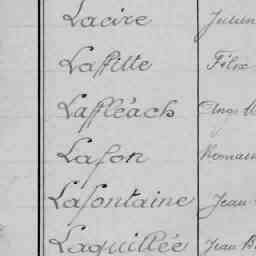 Lacire
Laffitte Félix
Laffléach
Lafon Romain
Lafontaine Jean
Laquillée Jean B